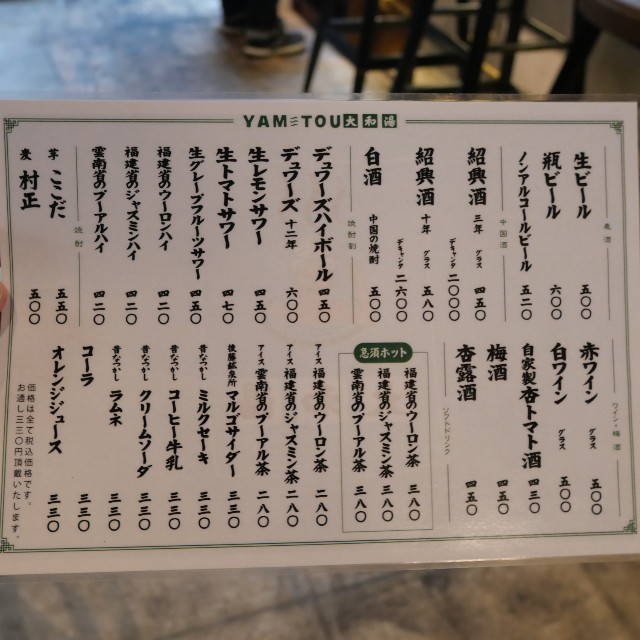 YAM TOU 大和湯
麦酒
生ビール 五〇〇
瓶ビール 六〇〇
ノンアルコールビール 五二〇
中国酒
紹興酒 三年 グラス 四五〇
デキャンタ 二〇〇〇
紹興酒 十年 グラス 五八〇
デキャンタ 二六〇〇
白酒 中国の焼酎 五〇〇
焼酎割
デュワーズハイボール 四五〇
デュワーズ 十二年 六〇〇
生レモンサワー 四五〇
生トマトサワー 四七〇
生グレープフルーツサワー 四五〇
福建省のウーロンハイ 四二〇
福建省のジャスミンハイ 四二〇
雲南省のプーアルハイ 四二〇
焼酎
芋 くこだ 五五〇
麦 村正 五〇〇
ワイン・梅酒
赤ワイン グラス 五〇〇
白ワイン グラス 五〇〇
自家製杏トマト酒 四三〇
梅酒 四五〇
杏露酒 四五〇
ソフトドリンク
急須ホット
福建省のウーロン茶 三八〇
福建省のジャスミン茶 三八〇
雲南省のプーアル茶 三八〇
アイス 福建省のウーロン茶 二八〇
アイス 福建省のジャスミン茶 二八〇
アイス 雲南省のプーアル茶 二八〇
後藤鉱泉所 マルゴサイダー 三三〇
昔なつかし ミルクセーキ 三三〇
昔なつかし コーヒー牛乳 三三〇
昔なつかし クリームソーダ 三三〇
昔なつかし ラムネ 三三〇
コーラ 三三〇
オレンジジュース 三三〇
価格は全て税込価格です。
お通し三三〇円頂戴いたします。